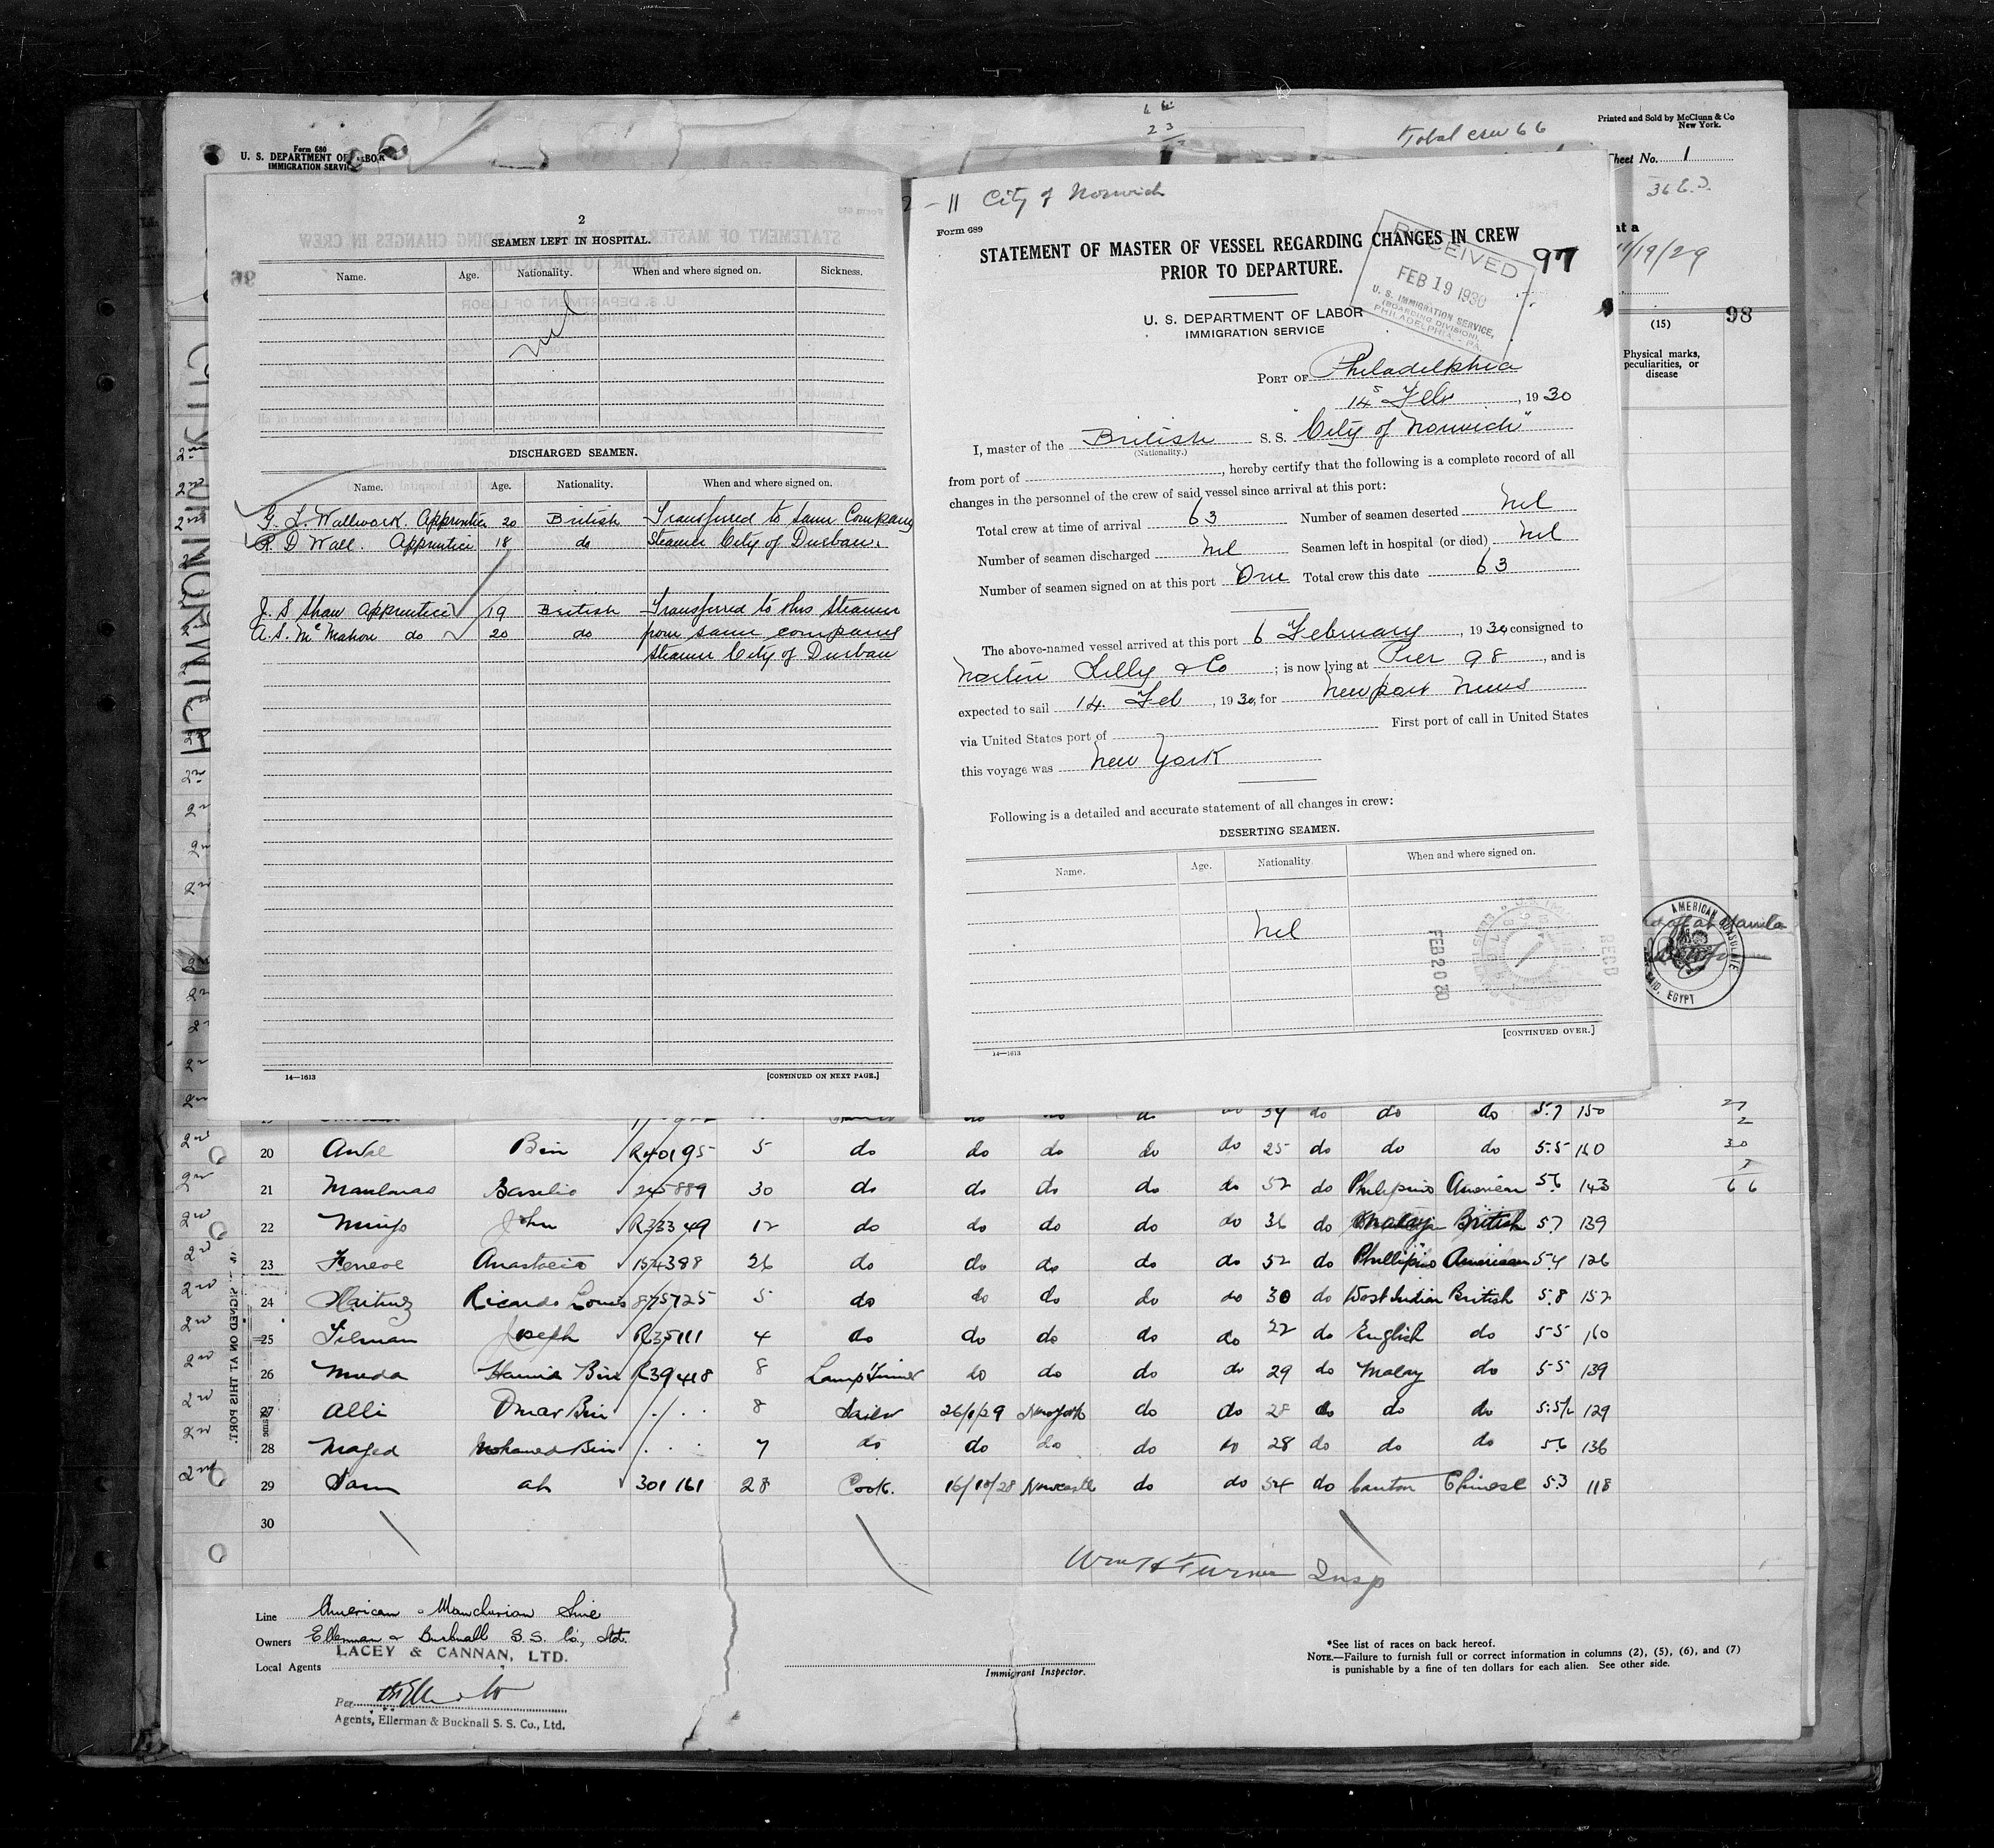 Form 680
U. S. DEPARTMENT OF LABOR
IMMIGRATION SERVICE
Total crew 66
Printed and Sold by McClunn & Co
New York.
Sheet No. 1
11/19/29
98
(15)
Physical marks,
peculiarities, or
disease
CITY OF NORWICH
2
SEAMEN LEFT IN HOSPITAL.
Name. Age. Nationality. When and where signed on. Sickness.
nil
DISCHARGED SEAMEN.
Name. Age. Nationality. When and where signed on.
G. L. Wallwork. Apprentice 20 British Transferred to same Company
R. D Wall. Apprentice 18 do Steamer City of Durban.
J. S Shaw apprentice 19 British Transferred to this Steamer
A. S. McMahon do 20 do from same company
Steamer City of Durban
14—1613 [CONTINUED ON NEXT PAGE.]
2 - 11 City of Norwich
Form 689
STATEMENT OF MASTER OF VESSEL REGARDING CHANGES IN CREW
PRIOR TO DEPARTURE.
97
RECEIVED
FEB 19 1930
U. S. IMMIGRATION SERVICE,
(BOARDING DIVISION)
PHILADELPHIA - PA.
U. S. DEPARTMENT OF LABOR
IMMIGRATION SERVICE
PORT OF Philadelphia
14 Feb, 1930
I, master of the British S. S. "City of Norwich"
(Nationality.)
from port of , hereby certify that the following is a complete record of all
changes in the personnel of the crew of said vessel since arrival at this port:
Total crew at time of arrival 63 Number of seamen deserted Nil
Number of seamen discharged Nil Seamen left in hospital (or died) Nil
Number of seamen signed on at this port One Total crew this date 63
The above-named vessel arrived at this port 6 February, 1930, consigned to
Lilly & Co ; is now lying at Pier 98, and is
expected to sail 14 Feb, 1930, for Newport News
via United States port of First port of call in United States
this voyage was New York
Following is a detailed and accurate statement of all changes in crew:
DESERTING SEAMEN.
Name. Age. Nationality. When and where signed on.
Nil
FEB 20 30
RECD
[CONTINUED OVER.]
14—1613
off at Manila
AMERICAN CONSULATE
SAID, EGYPT
34 do do do 5.7 150
2nd 20 Bin R40195 5 do do do do do 25 do do do 5.5 160
2nd 21 Basilio 245889 30 do do do do do 52 do Philipino American 5.6 143
2nd 22 John R33349 12 do do do do do 36 do Malay British 5.7 139
2nd 23 Anastacio 154388 26 do do do do do 52 do Phillipino American 5.4 126
2nd 24 Ricardo Louis 875725 5 do do do do do 30 do West Indian British 5.8 152
2nd 25 Joseph R35111 4 do do do do do 22 do English do 5-5 160
2nd 26 Muda Bin R39418 8 Lamp Trimmer do do do do 29 do Malay do 5-5 139
2nd 27 Alli Omar Bin 8 Sailor New York do do 28 do do do 5.5½ 129
2nd 28 Majed Mohamed Bin 7 do do do do do 28 do do do 5.6 136
2nd 29 Sam ah 301161 28 Cook. 16/10/28 Newcastle do do 54 do Canton Chinese 5.3 118
30
SIGNED ON AT THIS PORT.
Wm H Turner Insp
Line American & Manchurian Line
Owners Ellerman & Bucknall S. S. Co., Ltd.
LACEY & CANNAN, LTD.
Local Agents
Per
Agents, Ellerman & Bucknall S. S. Co., Ltd.
Immigrant Inspector.
*See list of races on back hereof.
NOTE.—Failure to furnish full or correct information in columns (2), (5), (6), and (7)
is punishable by a fine of ten dollars for each alien. See other side.